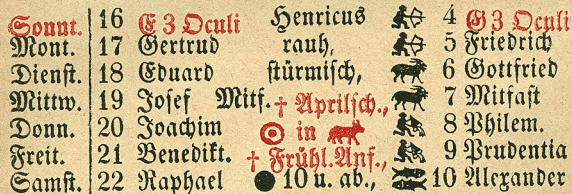 Sonnt. 16 E 3 Oculi Henricus 4 G 3 Oculi
Mont. 17 Gertrud rauh, 5 Friedrich
Dienst. 18 Eduard stürmisch, 6 Gottfried
Mittw. 19 Josef Mitf. † Aprilsch., 7 Mitfast
Donn. 20 Joachim in 8 Philem.
Freit. 21 Benedikt. † Frühl. Anf., 9 Prudentia
Samst. 22 Raphael 10 u. ab., 10 Alexander